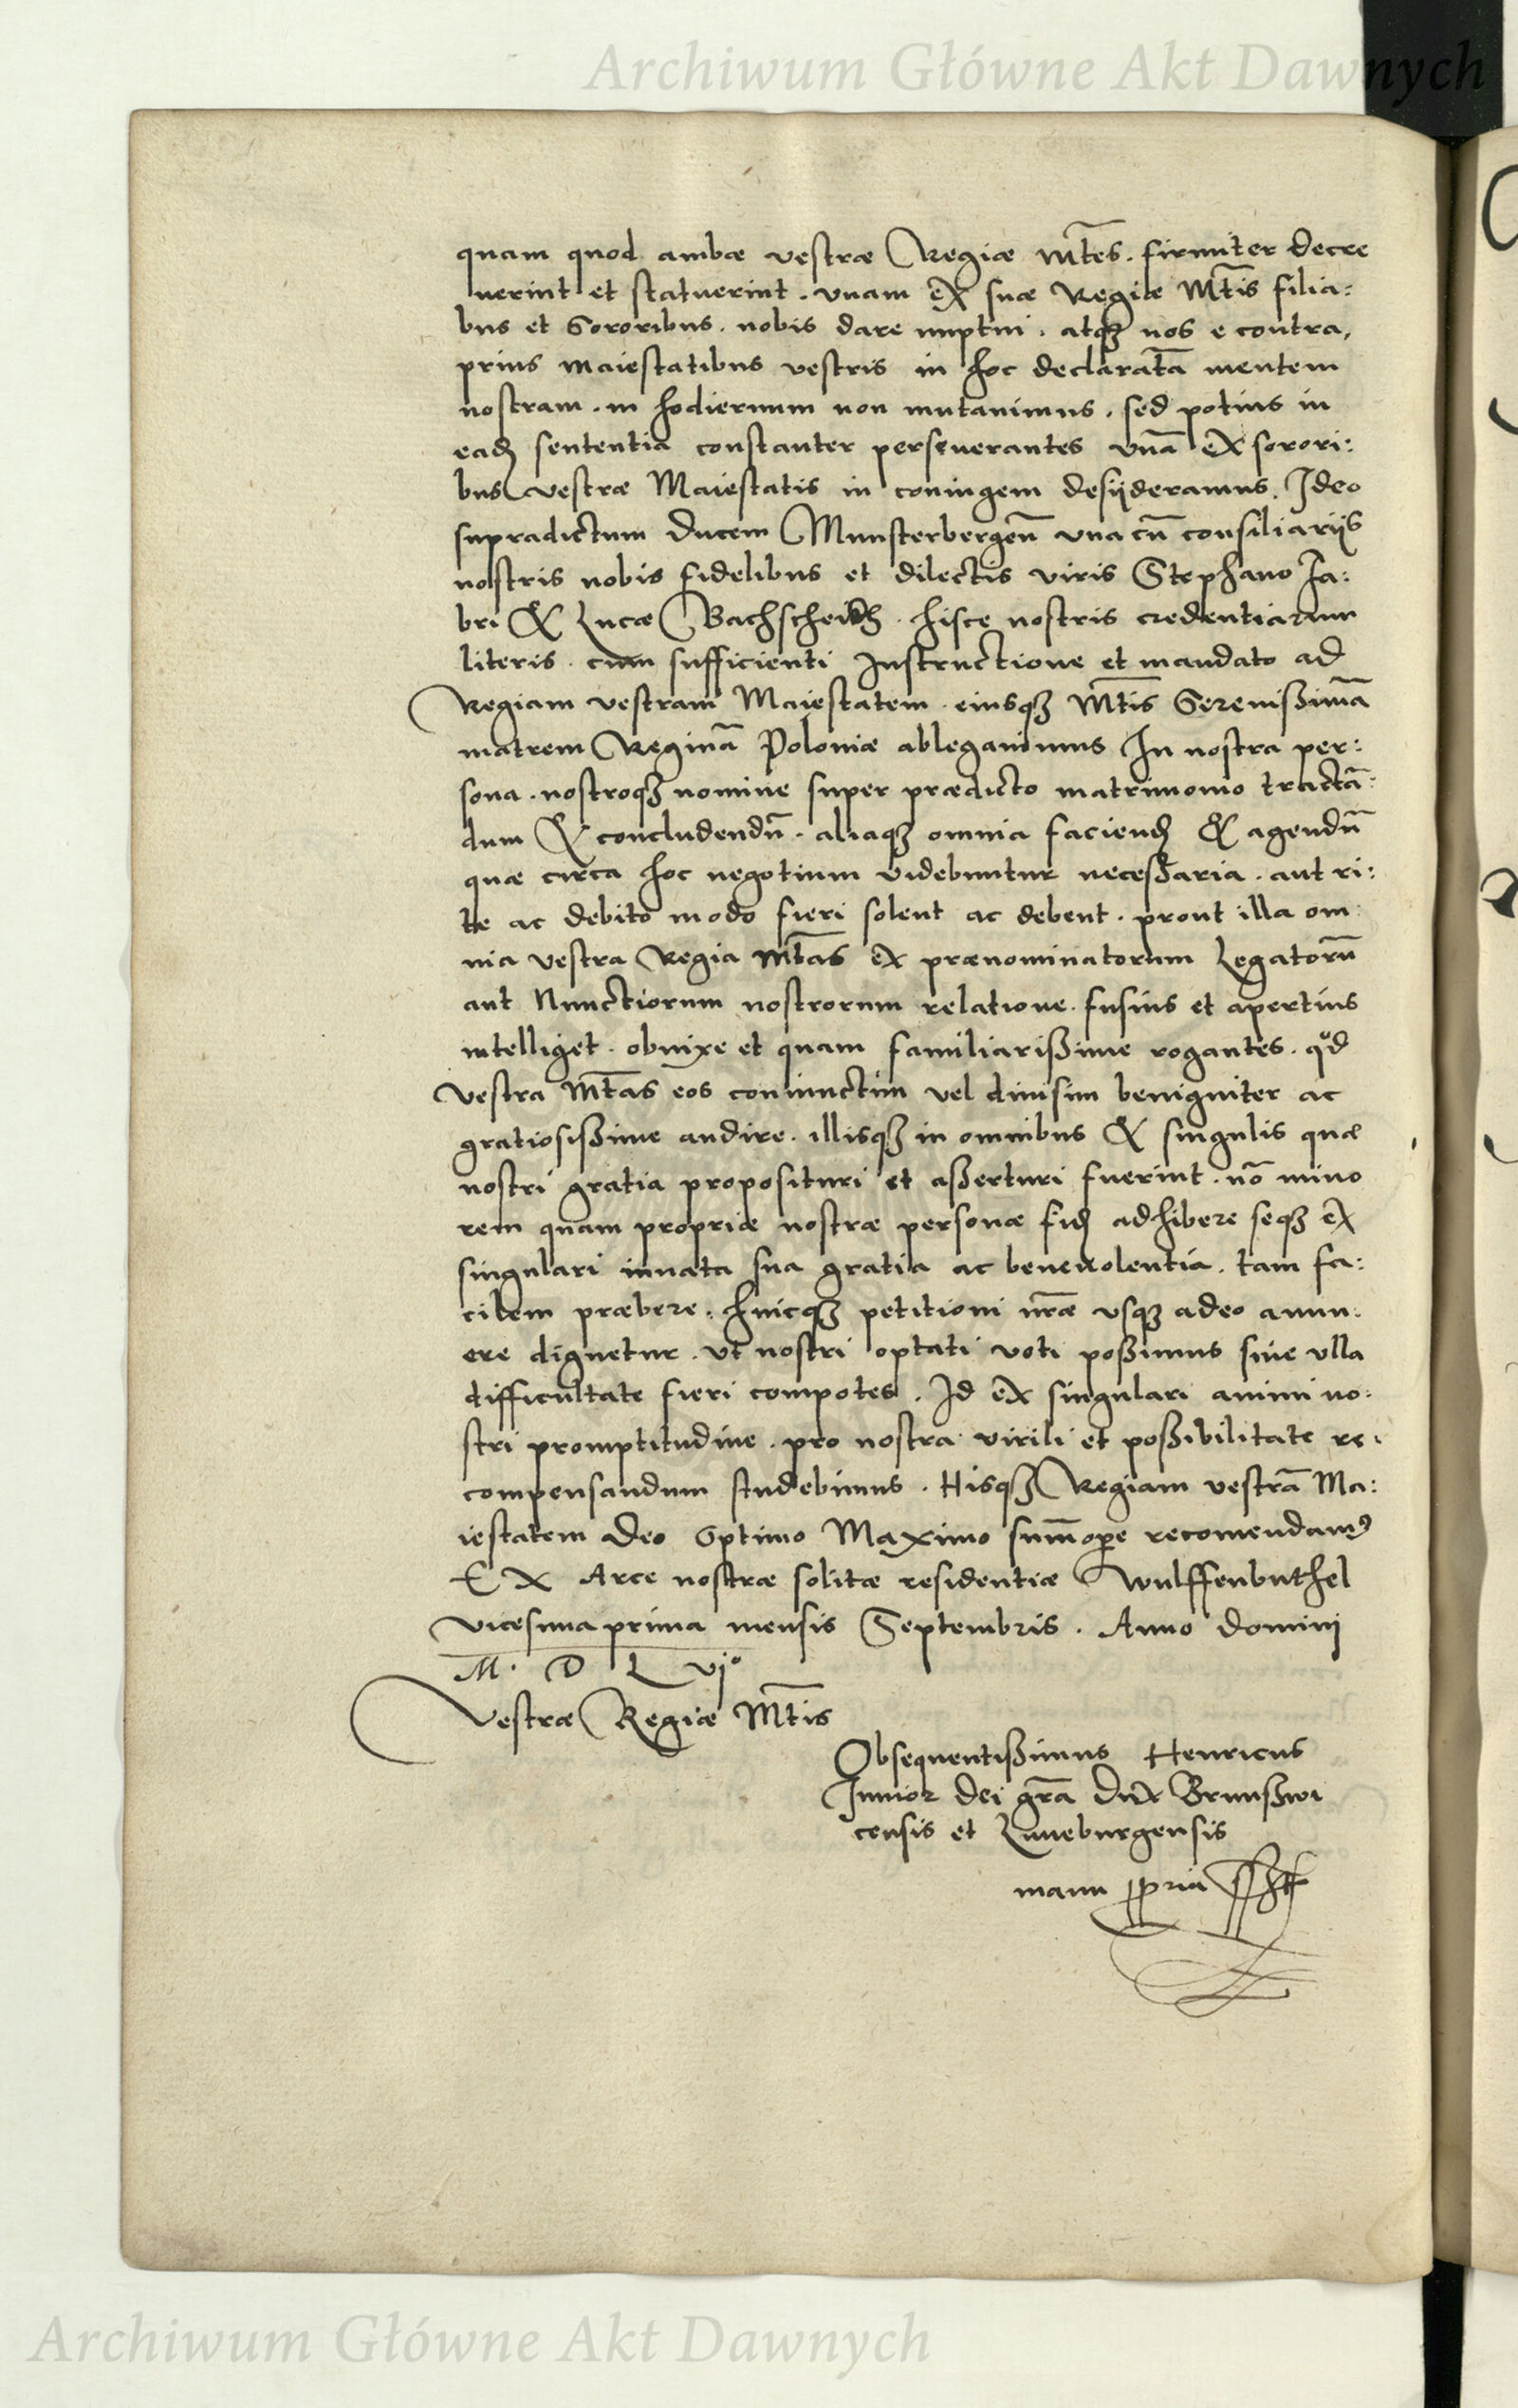 Archiwum Główne Akt Dawnych
quam quod ambæ vestræ Regiæ Mt̃es. firmiter decre
uerint et statuerint. vnam ex suæ Regiæ Mt̃is filia:
bus et Sororibus. nobis dare nuptui. atqꝫ nos e contra,
prius maiestatibus vestris in hoc declaratā mentem
nostram. in hodiernum non mutauimus. sed potius in
eadꝫ sententia constanter perseuerantes vnā ex sorori:
bus vestræ Maiestatis in coniugem desyderamus. Ideo
supradictum Ducem Munsterbergeñ vna cū consiliariis
nostris nobis fidelibus et dilectis viris Stephano Fa:
bri & Lucæ hisce nostris credentiarum
literis. cum sufficienti Instructione et mandato ad
Regiam vestram Maiestatem. eiusqꝫ Mt̃is Serenißimā
matrem Reginā Poloniæ ablegauimus In nostra per:
sona. nostroqꝫ nomine super prædicto matrimonio tractā:
dum & concludendū. aliaqꝫ omnia faciendꝫ & agendū
quæ circa hoc negotium videbuntur neceßaria. aut ri:
te ac debito modo fieri solent ac debent. prout illa om:
nia vestra Regia Mt̃as ex prænominatorum Legatorū
aut Nunctiorum nostrorum relatione. fusius et apertius
intelliget. obnixe et quam familiarißime rogantes. qd
Vestra Mt̃as eos coniunctim vel diuisim benigniter ac
gratiosißime audire. illisqꝫ in omnibus & singulis quæ
nostri gratia proposituri et aßerturi fuerint. nō mino
rem quam propriæ nostræ personæ fidꝫ adhibere seqꝫ ex
singulari innata sua gratia ac beneuolentia. tam fa:
cilem præbere. huicqꝫ petitioni nr̃æ vsqꝫ adeo annu:
ere dignetur. vt nostri optati voti poßimus sine vlla
difficultate fieri compotes. Id ex singulari animi no:
stri promptitudine. pro nostra virili et poßibilitate re:
compensandum studebimus. Hisqꝫ Regiam vestrā Ma:
iestatem Deo Optimo Maximo sum̃oꝑe recomendamꝰ
EX Arce nostræ solitæ residentiæ Wulffenbuthel
vicesima prima mensis Septembris. Anno Domini
M. D L vjo
Vestræ Regiæ Mt̃is
Obsequentißimus Henricus
Iunior Dei gr̃a Dux Brunßwi
censis et Luneburgensis
manu ꝓpria
Archiwum Główne Akt Dawnych